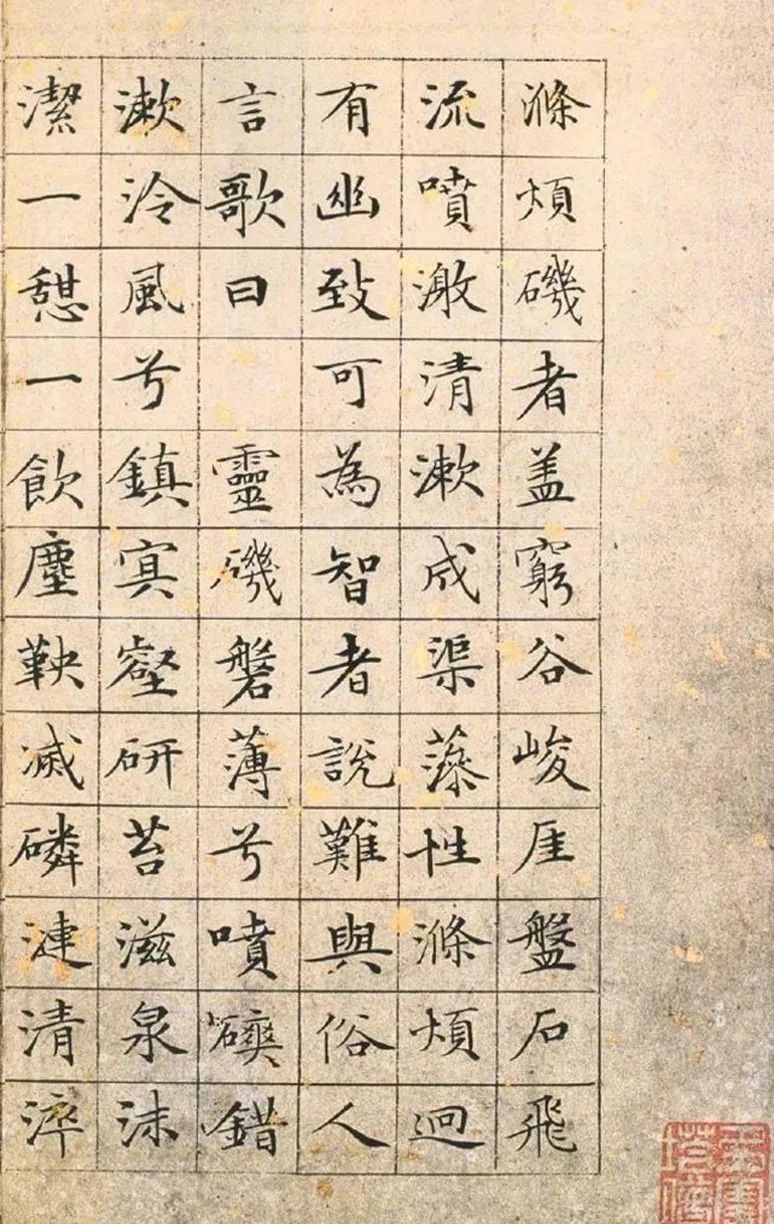 滌煩磯者盖窮谷峻厓盤石飛
流噴激清漱成渠藻性滌煩迥
有幽致可為智者說難與俗人
言歌曰 靈磯磐薄兮噴錯
漱泠風兮鎮冥壑研苔滋泉沫
潔一憩一飲塵鞅滅磷漣清淬